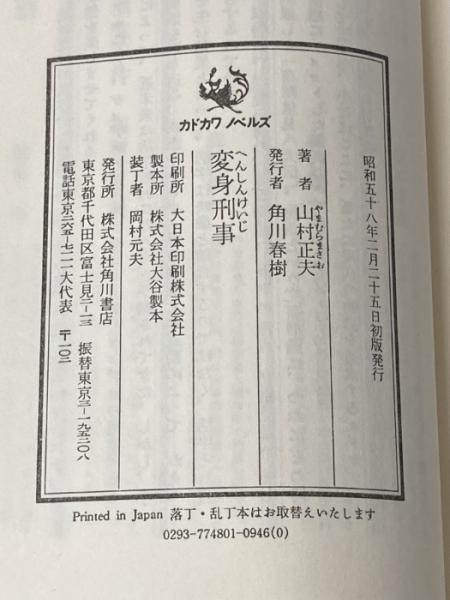 カドカワ ノベルズ
昭和五十八年二月二十五日初版発行
著者 山村正夫
やまむらまさお
発行者 角川春樹
変身刑事
へんしんけいじ
印刷所 大日本印刷株式会社
製本所 株式会社大谷製本
装丁者 岡村元夫
発行所 株式会社角川書店
東京都千代田区富士見二-一三 振替東京三-一九五二〇八
電話東京三六五-七一一一大代表 〒一〇二
Printed in Japan 落丁・乱丁本はお取替えいたします
0293-774801-0946(0)